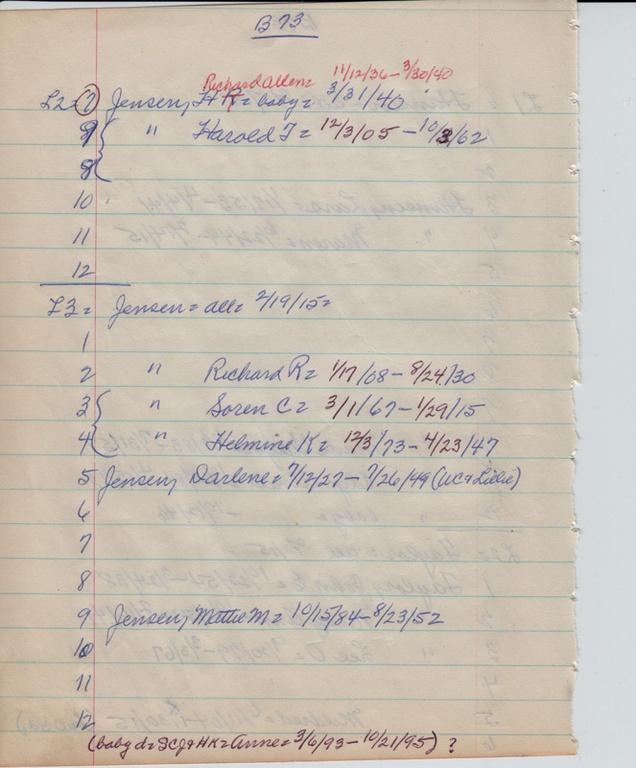 B73
Richard Allen= 11/12/36-3/30/40
L2=7 Jensen, HR= baby= 3/31/40
9 " Harold T= 12/3/05-10/3/62
8
10
11
12
L3= Jensen= all= 2/19/15=
1
2 " Richard R= 1/17/08-8/24/30
3 " Soren C= 3/1/67-1/29/15
4 " Helmine K= 12/3/73-4/23/47
5 Jensen, Darlene= 7/12/27-7/26/49 (WC+Lillie)
6
7
8
9 Jensen, Mettie M= 10/15/84-8/23/52
10
11
12
(baby d= SCJ+HK= Anne= 3/6/93-10/21/95) ?